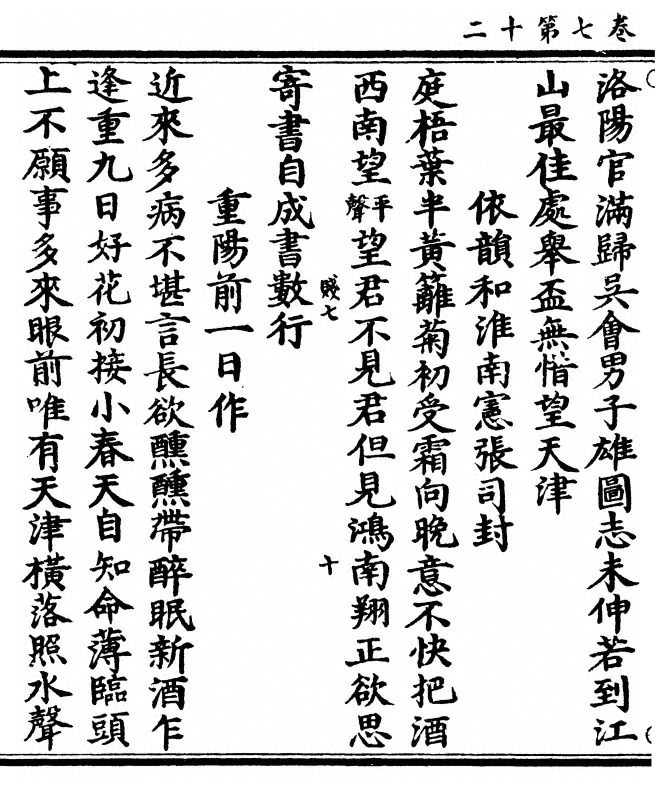 二十第七卷
洛陽官滿歸吳會男子雄圖志未伸若到江
山最佳處舉盃無惜望天津
依韻和淮南憲張司封
庭梧葉半黃籬菊初受霜向晚意不快把酒
西南望平聲望君不見君但見鴻南翔正欲思
寄書自成書數行
賤七
十
重陽前一日作
近來多病不堪言長欲醺醺帶醉眠新酒乍
逢重九日好花初接小春天自知命薄臨頭
上不願事多來眼前唯有天津橫落照水聲